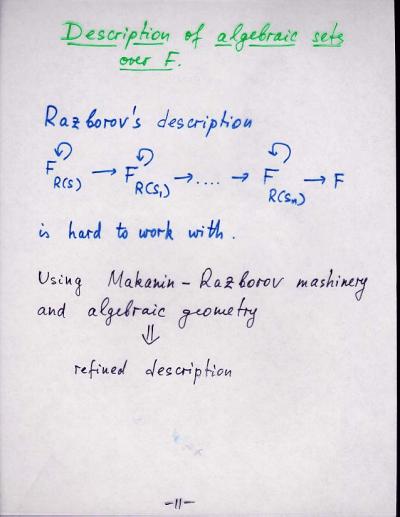 Description of algebraic sets
over F.
Razborov's description
F R(S) → F R(S₁) → .... → F R(Sₙ) → F
is hard to work with.
Using Makanin - Razborov mashinery
and algebraic geometry
⇓
refined description
-11-